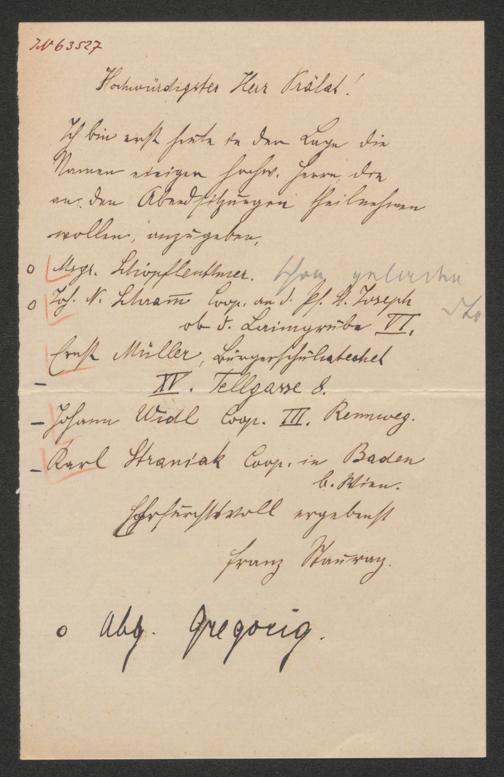 N 63527
Hochwürdigster Herr Prälat!
Ich bin erst heute in der Lage die
Namen einiger hochw. Herrn, die
an den Abendsitzungen theilnehmen
wollen, anzugeben.
o Msgr. Schöpfleuthner. schon geladen
o Joh. N. Schramm Coop. an d. Pf. St. Joseph
ob d. Laimgrube VI.
Ernst Müller, Bürgerschulkatechet
– XV. Tellgasse 8.
– Johann Widl Coop. III. Rennweg.
– Karl Straniak Coop. in Baden
b. Wien.
Ehrfurchtsvoll ergebenst
Franz Stauracz.
o Abg. Gregorig.